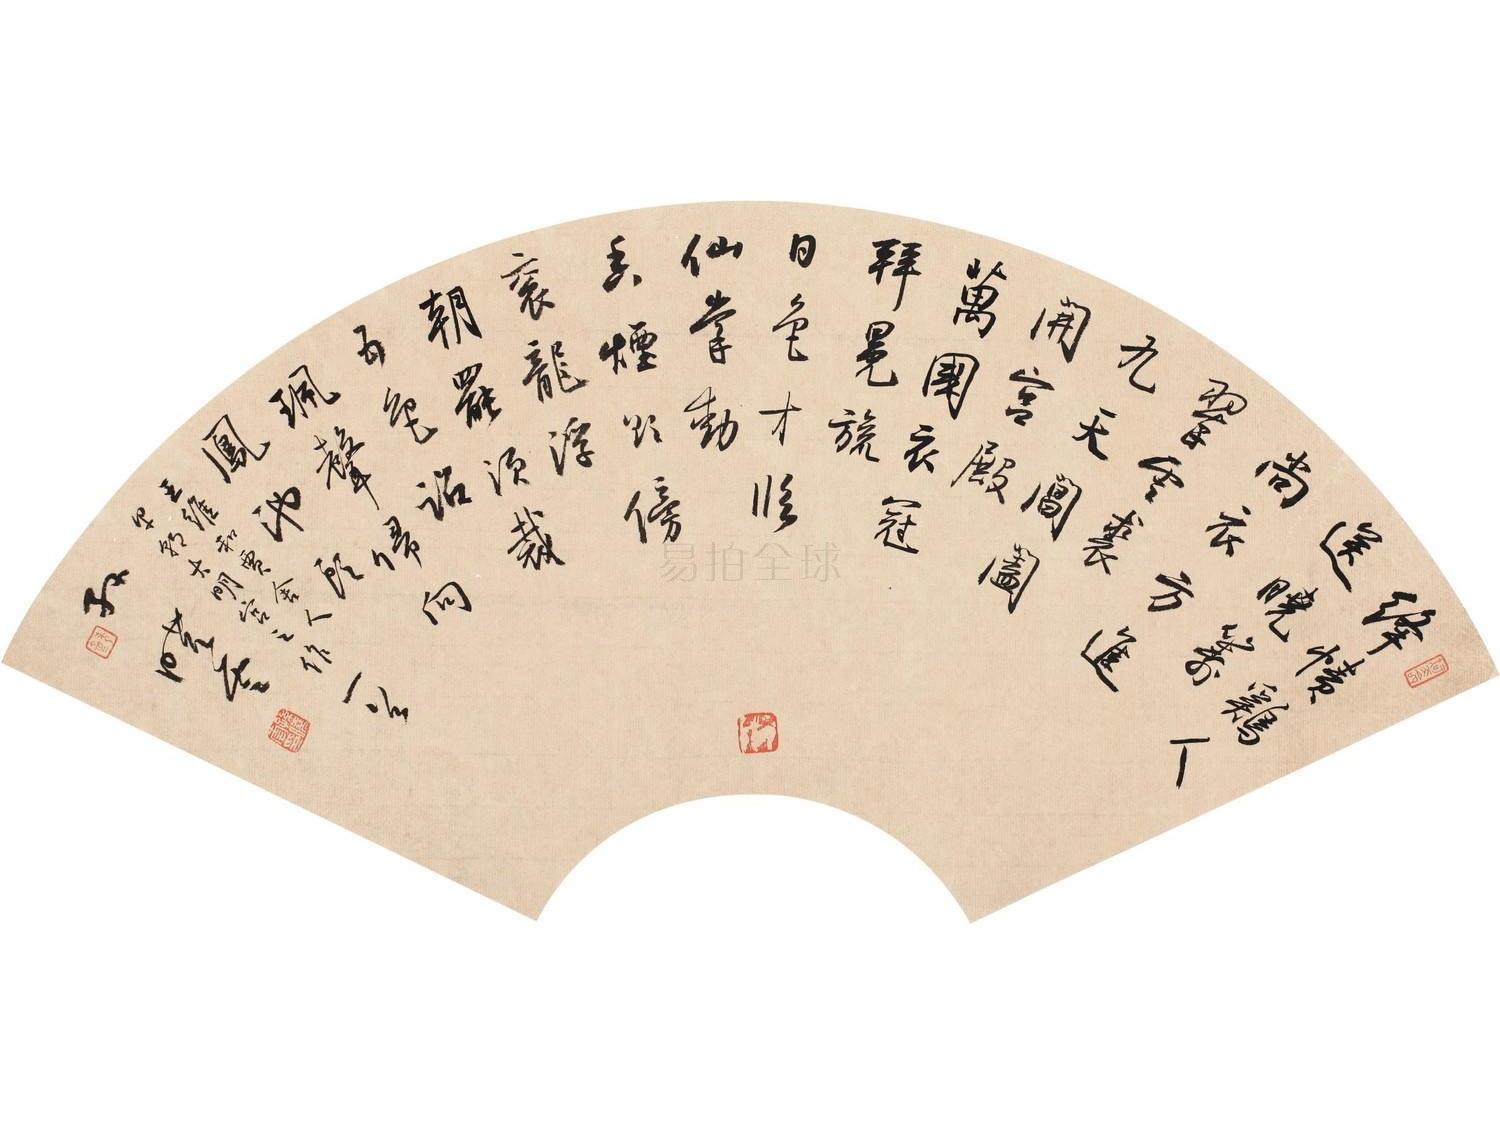 絳幘鷄人
送曉籌
尚衣方進
翠雲裘
九天閶闔
開宮殿
萬國衣冠
拜冕旒
日色才臨
仙掌動
香煙欲傍
袞龍浮
朝罷須裁
五色詔
珮聲歸向
鳳池頭
王維和賈舍人
早朝大明宮之作
孫曉雲
易拍全球